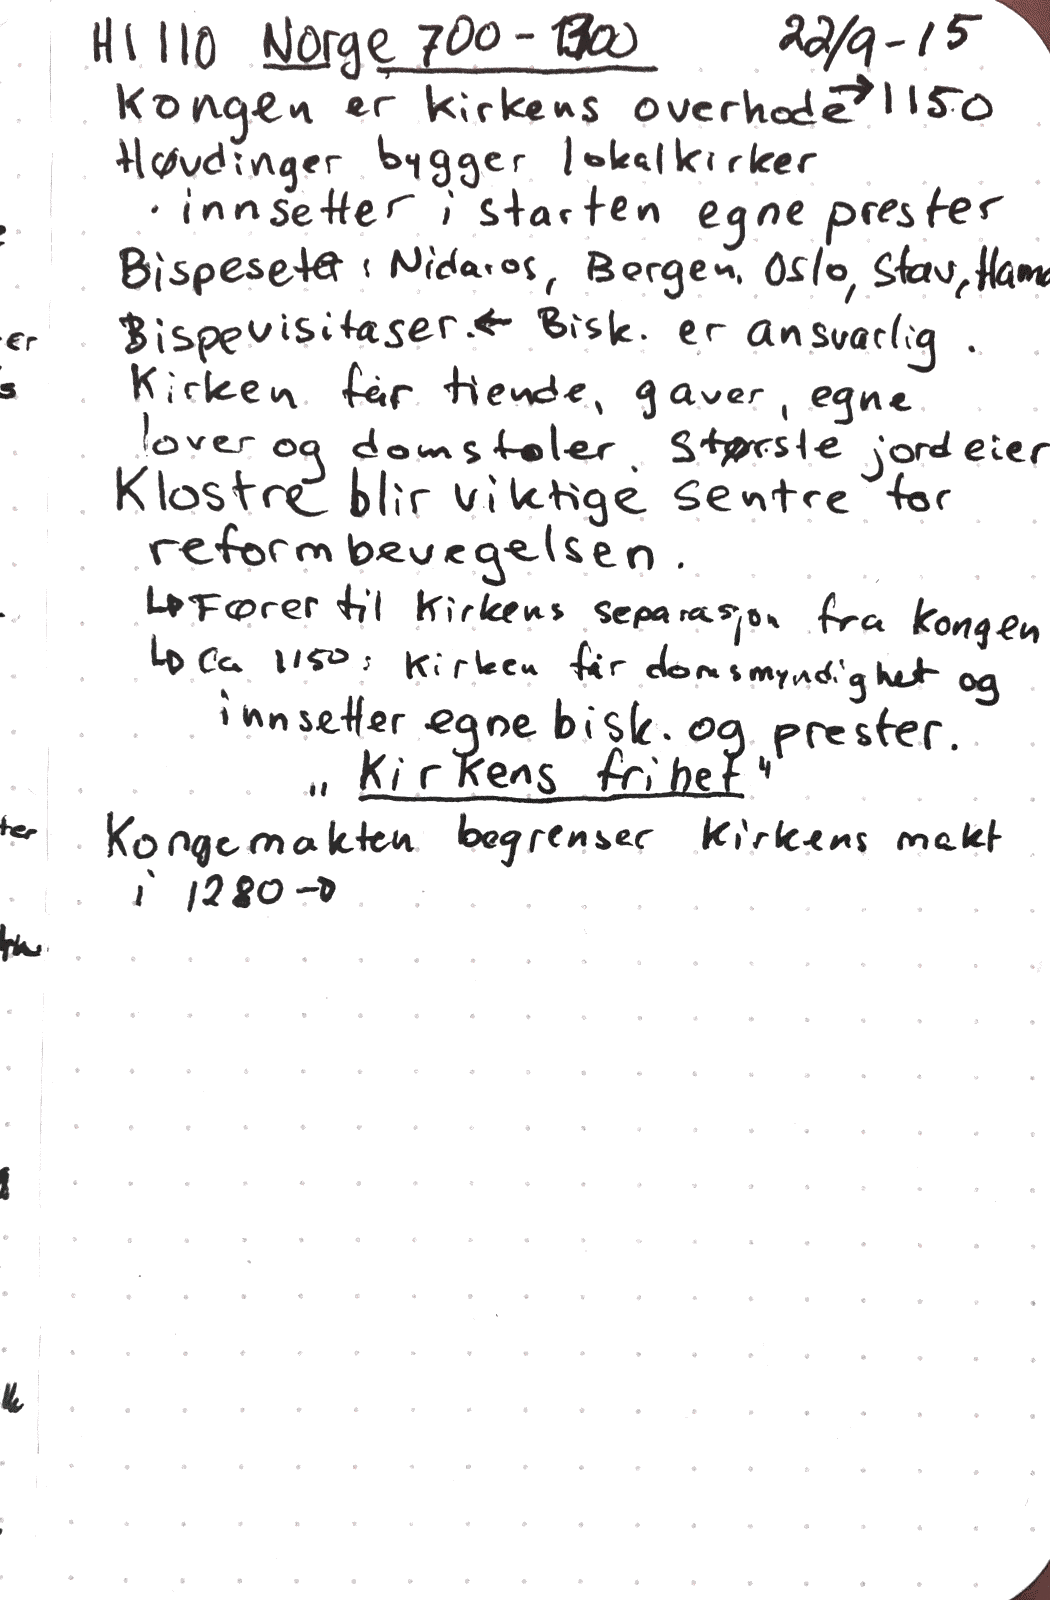 HI 110 Norge 700-1300 22/9-15
Kongen er kirkens overhode →1150
Høvdinger bygger lokalkirker
· innsetter i starten egne prester
Bispeseter: Nidaros, Bergen, Oslo, Stav, Hama
Bispevisitaser. ← Bisk. er ansvarlig.
Kirken får tiende, gaver, egne
lover og domstoler. Største jordeier
Klostre blir viktige sentre for
reformbevegelsen.
↳ Fører til Kirkens separasjon fra kongen
↳ Ca 1150: Kirken får domsmyndighet og
innsetter egne bisk. og prester.
„Kirkens frihet"
Kongemakten begrenser kirkens makt
i 1280→
er
s
ter